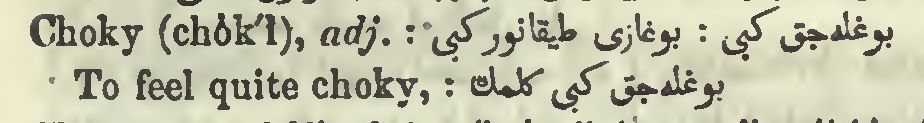 Choky (chŏk′ĭ), adj. : بوغله‌جق كبی : بوغازی طیقانور كبی
To feel quite choky, : بوغله‌جق كبی كلمك